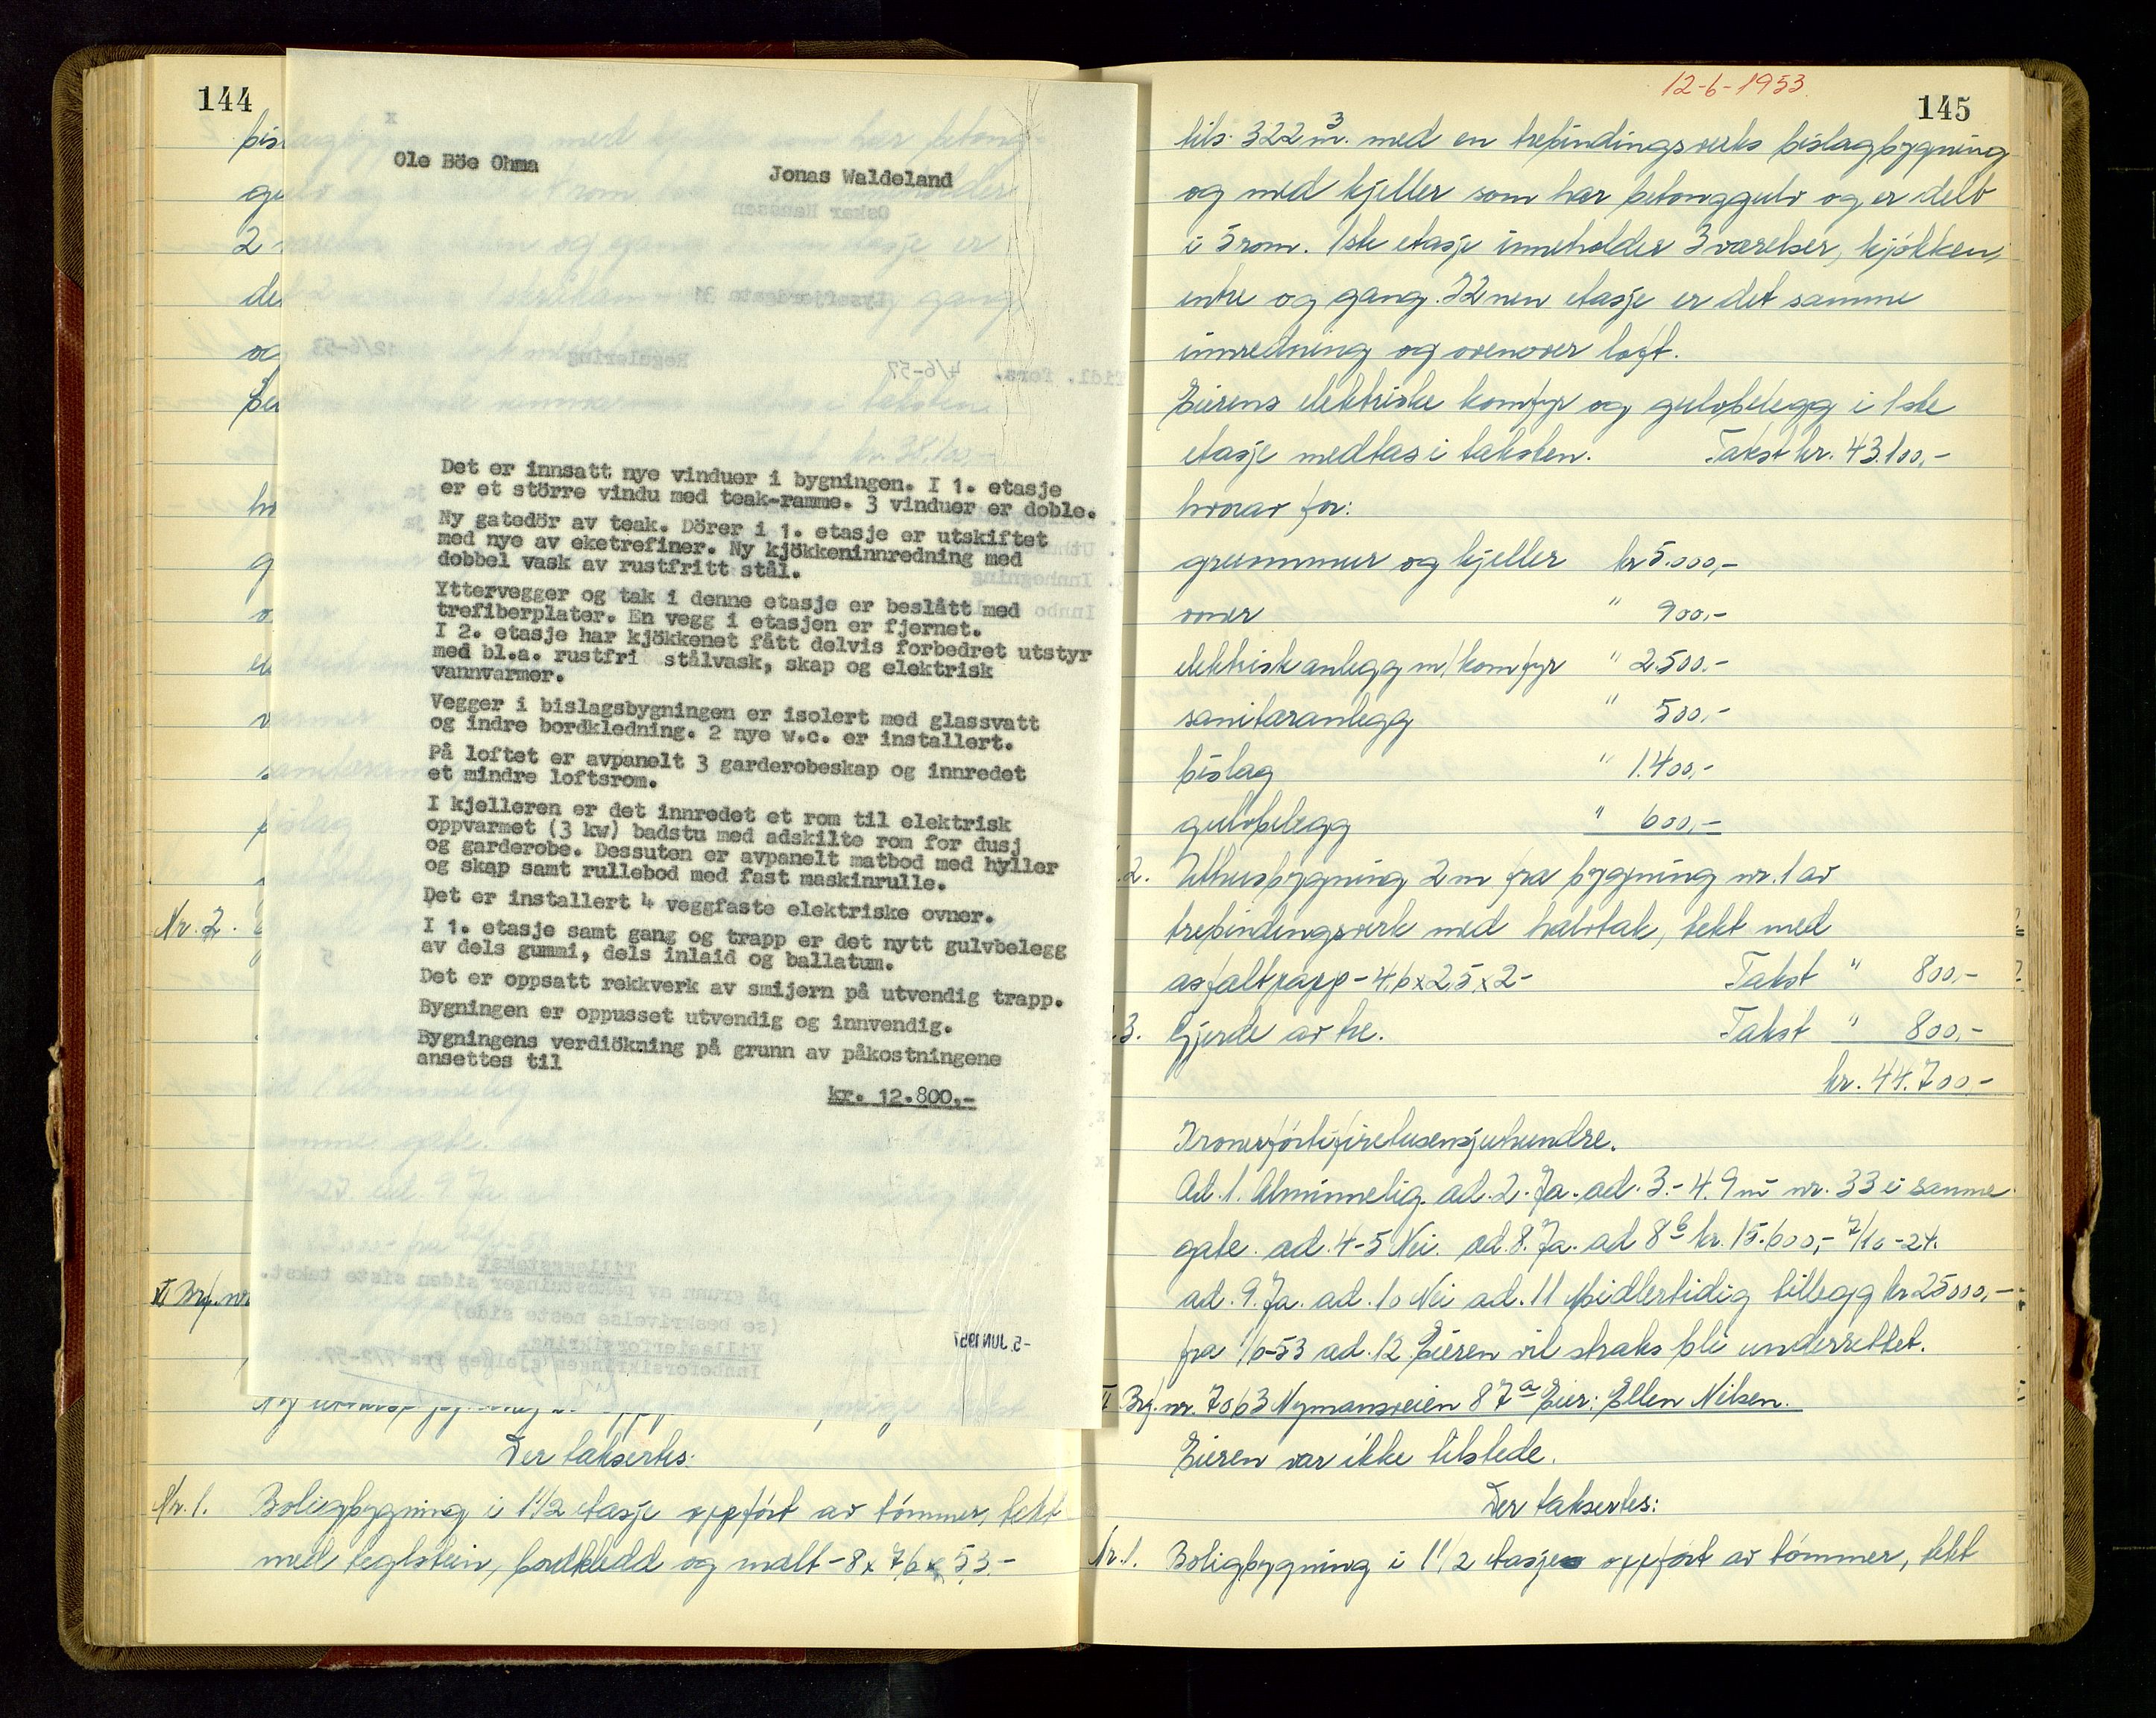 144
Ole Böe Ohma
Jonas Waldeland
Det er innsatt nye vinduer i bygningen. I 1. etasje
er et större vindu med teak-ramme. 3 vinduer er doble.
Ny gatedör av teak. Dörer i 1. etasje er utskiftet
med nye av eketrefiner. Ny kjökkeninnredning med
dobbel vask av rustfritt stål.
Yttervegger og tak i denne etasje er beslått med
trefiberplater. En vegg i etasjen er fjernet.
I 2. etasje har kjökkenet fått delvis forbedret utstyr
med bl.a. rustfri stålvask, skap og elektrisk
vannvarmer.
Vegger i bislagsbygningen er isolert med glassvatt
og indre bordkledning. 2 nye w.c. er installert.
På loftet er avpanelt 3 garderobeskap og innredet
et mindre loftsrom.
I kjelleren er det innredet et rom til elektrisk
oppvarmet (3 kw) badstu med adskilte rom for dusj
og garderobe. Dessuten er avpanelt matbod med hyller
og skap samt rullebod med fast maskinrulle.
Det er installert 4 veggfaste elektriske ovner.
I 1. etasje samt gang og trapp er det nytt gulvbelegg
av dels gummi, dels inlaid og ballatum.
Det er oppsatt rekkverk av smijern på utvendig trapp.
Bygningen er oppusset utvendig og innvendig.
Bygningens verdiökning på grunn av påkostningene
ansettes til
kr. 12.800,-
Nr. 2.
Der takseres:
Nr. 1. Boligbygning i 1 1/2 etasje oppfört av tömmer, tekt
med teglstein, bordkledd og malt - 8 x 7,6 x 5,3 -
12-6-1953.
145
tils. 322 m³. med en trebindingsverks bislagbygning
og med kjeller som har betonggulv og er delt
i 5 rom. 1ste etasje inneholder 3 værelser, kjökken,
entre og gang. I 2nen etasje er det samme
innredning og ovenover loft.
Eierens elektriske komfyr og gulvbelegg i 1ste
etasje medtas i taksten. Takst kr. 43.100,-
hvorav for:
grunnmur og kjeller kr 5.000,-
ovner " 900,-
elektrisk anlegg m/komfyr " 2.500.-
sanitæranlegg " 500,-
bislag " 1.400,-
gulvbelegg " 600,-
2. Uthusbygning 2 m fra bygning nr. 1 av
trebindingsverk med halvtak, tekt med
asfaltpapp - 4,6 x 2,5 x 2 - Takst " 800,-
3. Gjerde av tre. Takst " 800,-
kr. 44.700,-
Kronerförtifiretusensjuhundre.
Ad. 1. Alminnelig. ad. 2. Ja. ad. 3. - 4.9 m nr. 33 i samme
gate. ad. 4-5 Nei. ad. 8. Ja. ad 8b kr. 15.600,- 7/10-24.
ad. 9. Ja. ad. 10 Nei ad. 11 Midlertidig tillegg kr 25000,-
fra 1/6-53 ad. 12. Eieren vil straks bli underrettet.
Brf. nr. 7063 Nymansveien 87a Eier: Ellen Nilsen.
Eieren var ikke tilstede.
Der takseres:
Nr. 1. Boligbygning i 1 1/2 etasje oppfört av tömmer, tekt